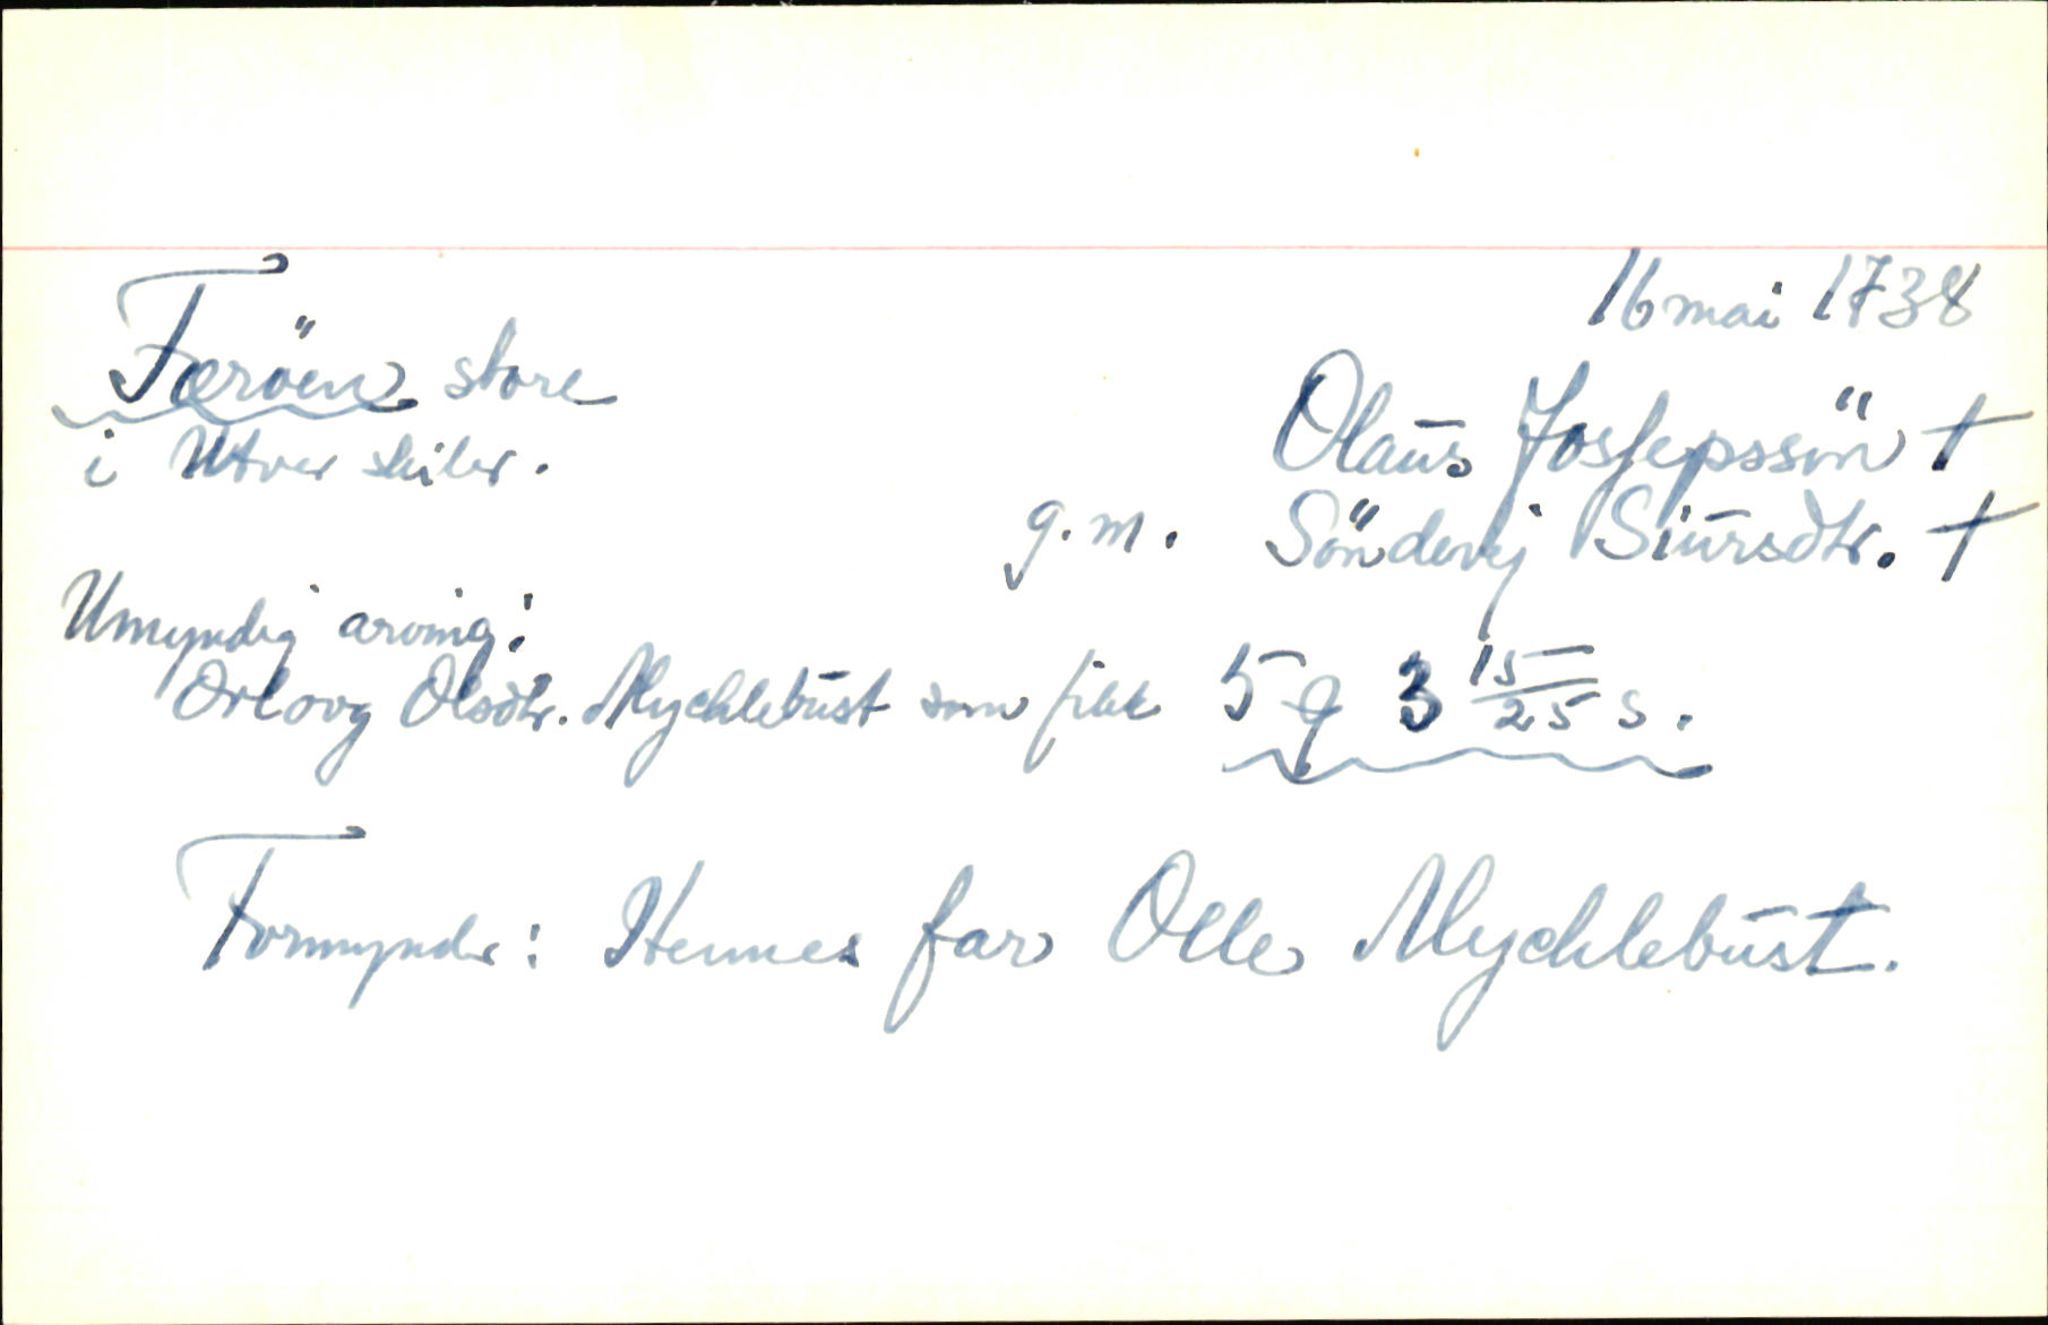 16 mai 1738
Færöen store
i Utver skibr.
Olaus Josfepssön †
g.m. Sönderj Siursdtr. †
Umyndig arving:
Orlovg Olsdtr. Mychlebust som fikk 5 q 3 15/25 s.
Formyndr: Hennes far Olle Mychlebust.